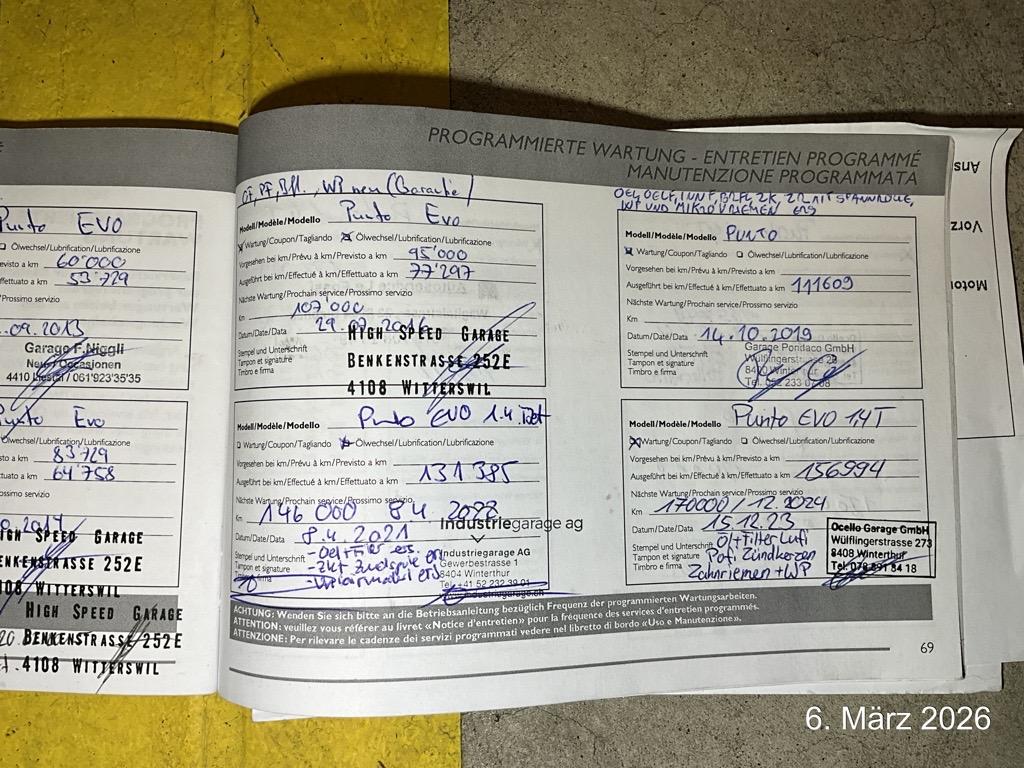 PROGRAMMIERTE WARTUNG - ENTRETIEN PROGRAMMÉ
MANUTENZIONE PROGRAMMATA
Punto EVO
Ölwechsel/Lubrification/Lubrificazione
evisto a km 60'000
ffettuato a km 53'729
/Prossimo servizio
.09.2013
Garage F. Niggli
Neu-/Occasjonen
4410 Liestal / 061'923'35'35
Punto Evo
Ölwechsel/Lubrification/Lubrificazione
Previsto a km 83'729
ttuato a km 64'758
ossimo servizio
.2014
HIGH SPEED GARAGE
BENKENSTRASSE 252E
4108 WITTERSWIL
HIGH SPEED GARAGE
BENKENSTRASSE 252E
4108 WITTERSWIL
ÖF, PF, Bfl., WP neu (Garantie)
Modell/Modèle/Modello Punto Evo
Wartung/Coupon/Tagliando Ölwechsel/Lubrification/Lubrificazione
Vorgesehen bei km/Prévu à km/Previsto a km 95'000
Ausgeführt bei km/Effectué à km/Effettuato a km 77'297
Nächste Wartung/Prochain service/Prossimo servizio
Km 107'000
Datum/Date/Data 29.
Stempel und Unterschrift
Tampon et signature
Timbro e firma
HIGH SPEED GARAGE
BENKENSTRASSE 252E
4108 WITTERSWIL
Modell/Modèle/Modello Punto EVO 1.4
Wartung/Coupon/Tagliando Ölwechsel/Lubrification/Lubrificazione
Vorgesehen bei km/Prévu à km/Previsto a km
Ausgeführt bei km/Effectué à km/Effettuato a km 131385
Nächste Wartung/Prochain service/Prossimo servizio
Km 146 000 8 4
Datum/Date/Data 8.4.2021
Stempel und Unterschrift
Tampon et signature
firma
- Oel+Filter ers.
Industriegarage ag
Industriegarage AG
Gewerbestrasse 1
8404 Winterthur
Tel. +41 52 232 39 01
www.industriegarage.ch
OEL, OELF, INNF, BRFL, ZK, ZR MIT SPANNROLLE,
WP UND MIKROVRIEMEN ERS
Modell/Modèle/Modello PUNTO
Wartung/Coupon/Tagliando Ölwechsel/Lubrification/Lubrificazione
Vorgesehen bei km/Prévu à km/Previsto a km
Ausgeführt bei km/Effectué à km/Effettuato a km 111609
Nächste Wartung/Prochain service/Prossimo servizio
Km
Datum/Date/Data 14.10.2019
Stempel und Unterschrift
Tampon et signature
Timbro e firma
Garage Pondaco GmbH
Wülflingerstrasse
Modell/Modèle/Modello Punto EVO 1,4 T
Wartung/Coupon/Tagliando Ölwechsel/Lubrification/Lubrificazione
Vorgesehen bei km/Prévu à km/Previsto a km
Ausgeführt bei km/Effectué à km/Effettuato a km 156994
Nächste Wartung/Prochain service/Prossimo servizio
Km 170000 / 12.2024
Datum/Date/Data 15.12.23
Stempel und Unterschrift
Tampon et signature
Timbro e firma
Öl+Filter Luft
Pol. Zündkerzen
Zahnriemen + WP
Ocello Garage GmbH
Wülflingerstrasse 273
8408 Winterthur
Tel. 078 891 84 18
ACHTUNG: Wenden Sie sich bitte an die Betriebsanleitung bezüglich Frequenz der programmierten Wartungsarbeiten.
ATTENTION: veuillez vous référer au livret «Notice d'entretien» pour la fréquence des services d'entretien programmés.
ATTENZIONE: Per rilevare le cadenze dei servizi programmati vedere nel libretto di bordo «Uso e Manutenzione».
69
Ans
Vorz
Motor
6. März 2026